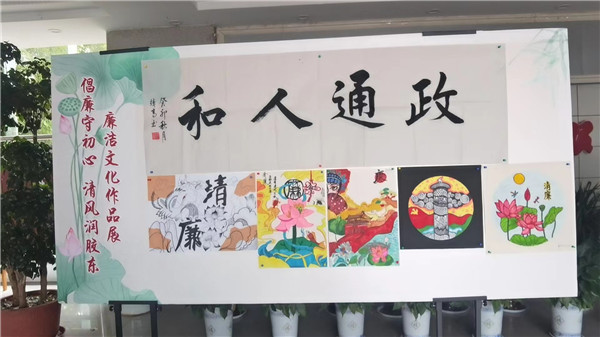 倡廉守初心 清风润胶东
廉洁文化作品展
政通人和
癸卯秋月
清廉
廉
廉
清廉